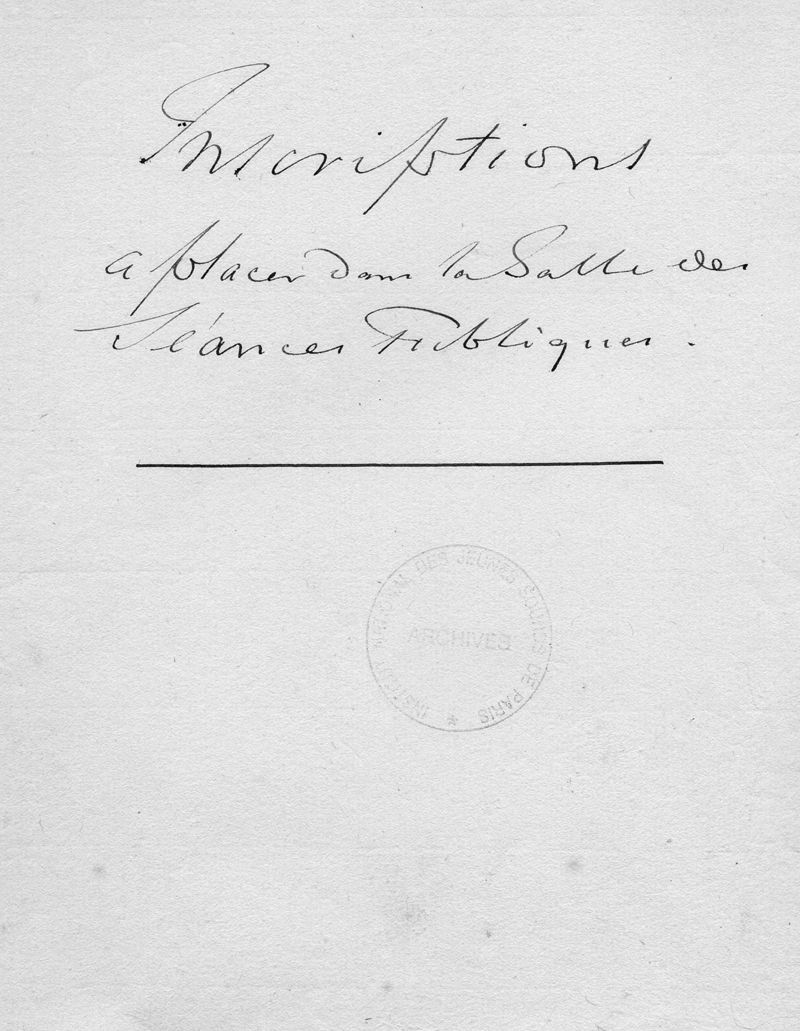 Inscriptions
a placer dans la Salle des
Séances Publiques.
INSTITUT NATIONAL DES JEUNES SOURDS DE PARIS *
ARCHIVES